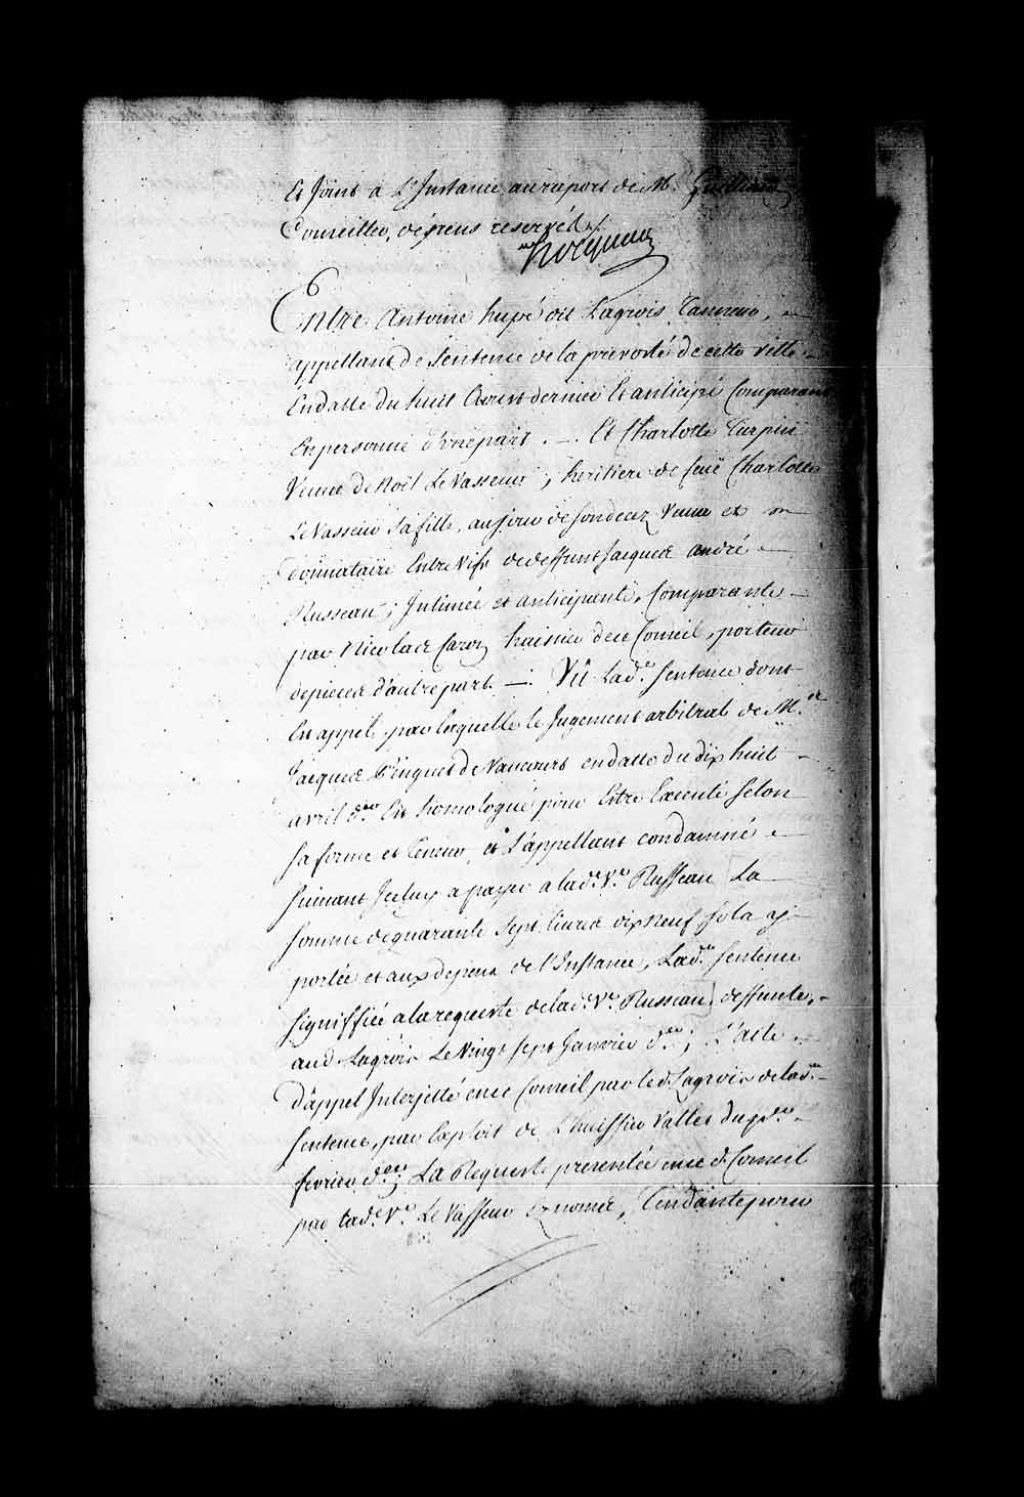 Et Joint a L'Instance au raport de M.r Guillimin
Conseiller, dépens reservés ./.
hocquart
Entre Antoine hupé dit Lagrois Tanneur,
appellant de Sentence de la prevosté de cette ville
En datte du huit Avril dernier Et anticipé Comparant
En personne d'une part. — Et Charlotte Turpin
Veuve de Noël Le Vasseur, heritiere de feüe Charlotte
Le Vasseur Sa fille, au jour de son decez Veuve et
donnataire Entre Vifs de deffunt Jacques andré
Russeau; Intimée et anticipante, Comparante
par Nicolas Caron huissier dece Conseil, porteur
de pieces d'autre part. —. Vû Lad.e Sentence dont
Est appel, par laquelle le Jugement arbitral de M.e
Jacques Pinguet de Vaucours en datte du dix huit
avril d.er Est homologué pour Estre Executé Selon
Sa forme et teneur, et L'appellant condamné
Suivant Iceluy a payer a lad.e V.e Russeau La
Somme de quarante Sept livres dix neuf Sols y
portée et aux depens de l'Instance, Lad.e Sentence
Signiffiée a la requeste de lad.e V.e Russeau deffunte,
aud. Lagrois Le Vingt Sept Janvier d.er; L'acte
D'appel Interjetté en ce Conseil par led. Lagrois de lad.e
Sentence, par Exploit de L'huissier Vallet du p.er
fevrier d.er; La Requeste presentée en ce d. Conseil
par Lad.e V.e Le Vasseur Es noms, Tendante pour